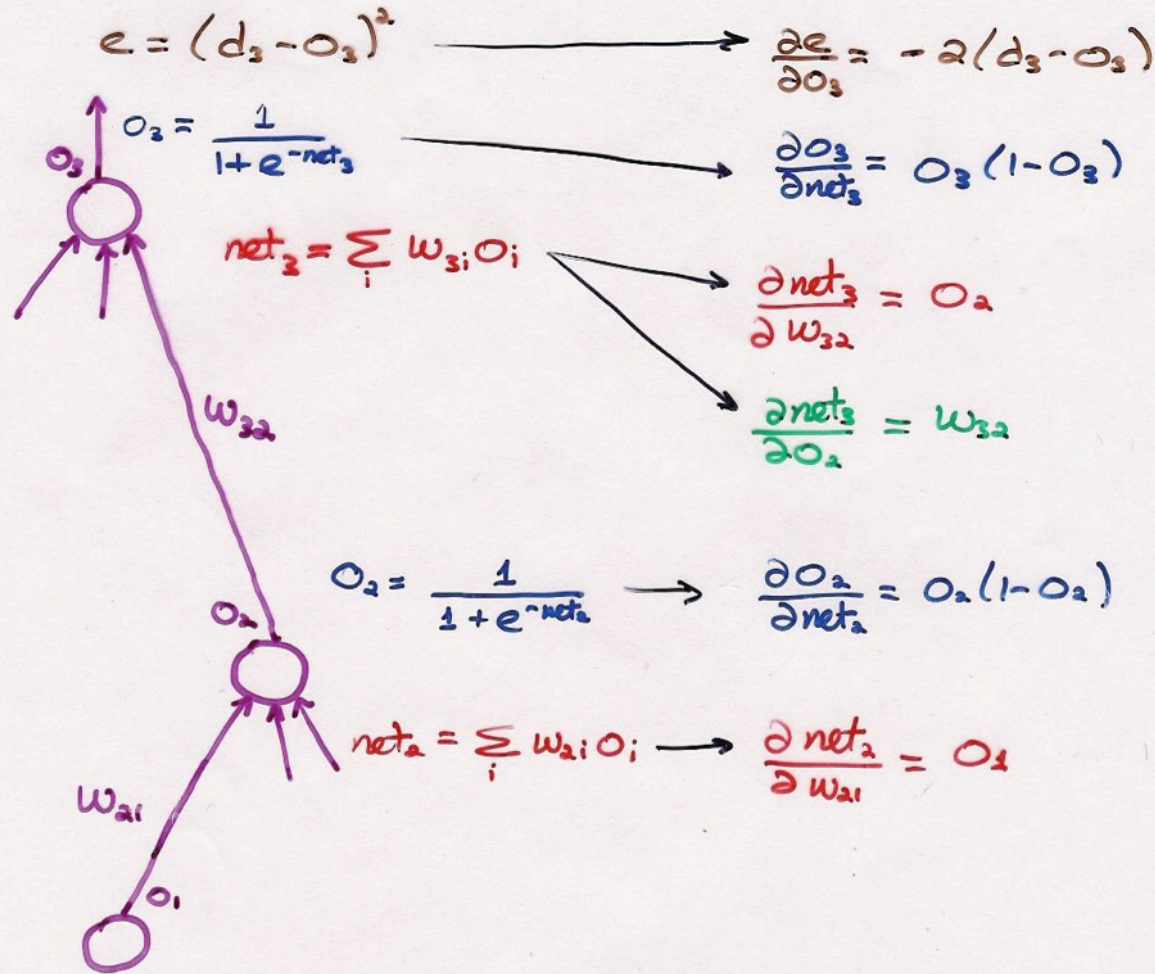 e = (d₃-O₃)² → ∂e/∂O₃ = -2(d₃-O₃)
O₃ = 1/(1+e^(-net₃)) → ∂O₃/∂net₃ = O₃(1-O₃)
O₃
net₃ = Σᵢ w₃ᵢOᵢ → ∂net₃/∂w₃₂ = O₂
∂net₃/∂O₂ = w₃₂
w₃₂
O₂ = 1/(1+e^(-net₂)) → ∂O₂/∂net₂ = O₂(1-O₂)
O₂
net₂ = Σᵢ w₂ᵢOᵢ → ∂net₂/∂w₂₁ = O₁
w₂₁
O₁